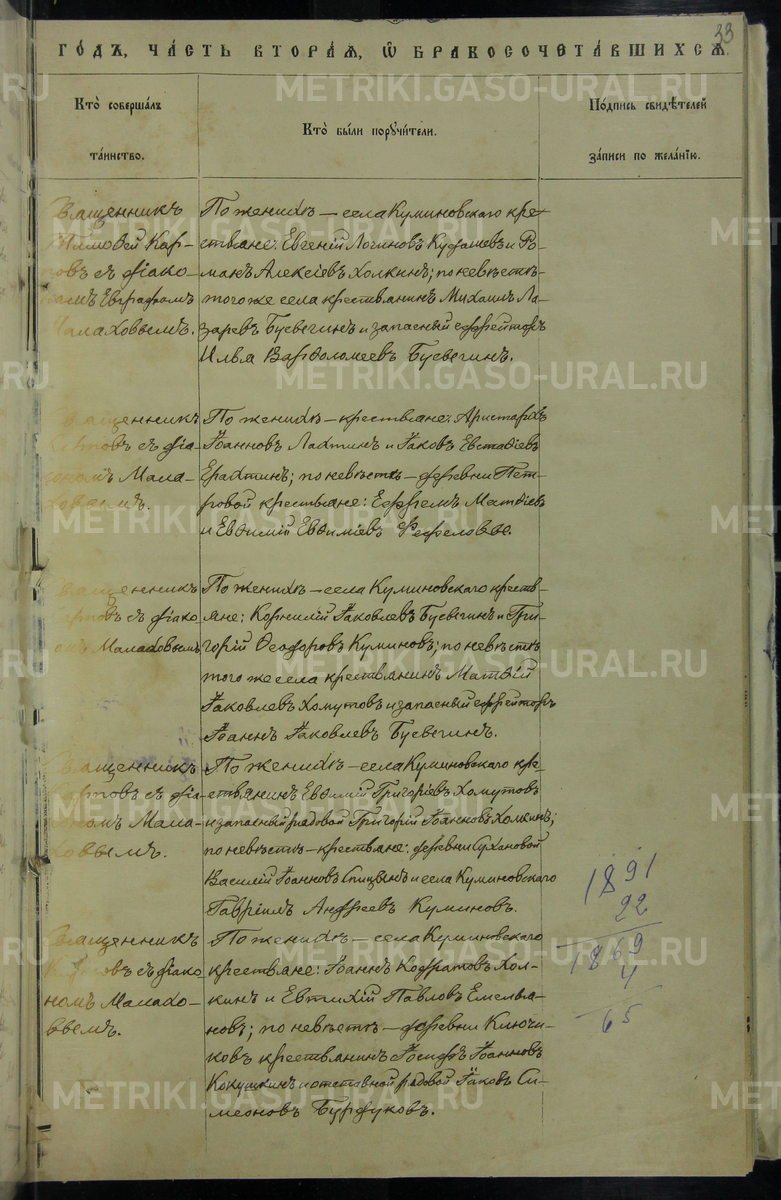 33
ГО́ДЪ, ЧА́СТЬ ВТОРА́Я, Ѿ БРАКОСОЧЕТА́ВШИХСЯ.
Кто̀ соверша́лъ
та́инство.
Кто̀ бы́ли порꙋчи́тели.
По́дпись свидѣ́телей
за́писи по жела́нїю.
Священникъ
Тимоѳей Кар-
повъ съ діако-
номъ Евграфомъ
Малаховымъ.
По женихѣ — села Куминовскаго кре-
стьяне: Евгеній Логиновъ Кудашевъ и Ро-
манъ Алексіевъ Холкинъ; по невѣстѣ —
того же села крестьянинъ Михаилъ Ла-
заревъ Бусыгинъ и запасный ефрейторъ
Илья Варѳоломеевъ Бусыгинъ.
Священникъ
Карповъ съ діа-
кономъ Мала-
ховымъ.
По женихѣ — крестьяне: Аристархъ
Іоанновъ Лахтинъ и Іаковъ Евстаѳіевъ
Ерахтинъ; по невѣстѣ — деревни Пет-
ровой крестьяне: Ефремъ Матѳіевъ
и Евѳимій Евѳиміевъ Фефеловы.
Священникъ
Карповъ съ діако-
номъ Малаховымъ
По женихѣ — села Куминовскаго кресть-
яне: Корнилій Іаковлевъ Бусыгинъ и Гри-
горій Ѳеодоровъ Куминовъ; по невѣстѣ
того же села крестьянинъ Матѳій
Іаковлевъ Хомутовъ и запасный ефрейторъ
Іоаннъ Іаковлевъ Бусыгинъ.
Священникъ
Карповъ съ діа-
кономъ Мала-
ховымъ.
По женихѣ — села Куминовскаго кре-
стьянинъ Евѳимій Григоріевъ Хомутовъ
и запасный рядовой Григорій Іоанновъ Холкинъ;
по невѣстѣ — крестьяне: деревни Сухановой
Василій Іоанновъ Спицынъ и села Куминовскаго
Гавріилъ Андреевъ Куминовъ.
Священникъ
Карповъ съ діако-
номъ Малахо-
вымъ.
По женихѣ — села Куминовскаго
крестьяне: Іоаннъ Кодратовъ Хол-
кинъ и Евтихій Павловъ Емелья-
новъ; по невѣстѣ — деревни Ключи-
ковъ крестьянинъ Іосифъ Іоанновъ
Кокушкинъ и отставной рядовой Іаковъ Си-
меоновъ Бурдуковъ.
1891
22
1869
4
65
METRIKI.GASO-URAL.RU